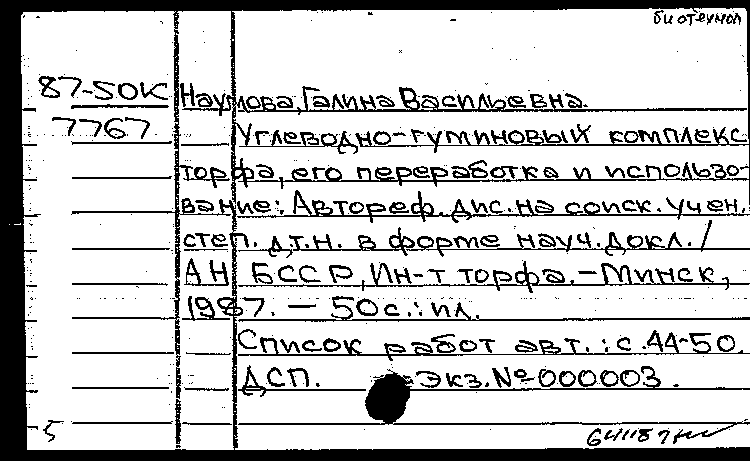 биотехнол
87-50К Наумова, Галина Васильевна.
7767 Углеводно-гуминовый комплекс
торфа, его переработка и использо-
вание: Автореф. дис. на соиск. учен.
степ. д.т.н. в форме науч. докл. /
АН БССР, Ин-т торфа. - Минск,
1987. - 50 с.: ил.
Список работ авт.: с. 44-50.
ДСП. Экз. № 000003.
5